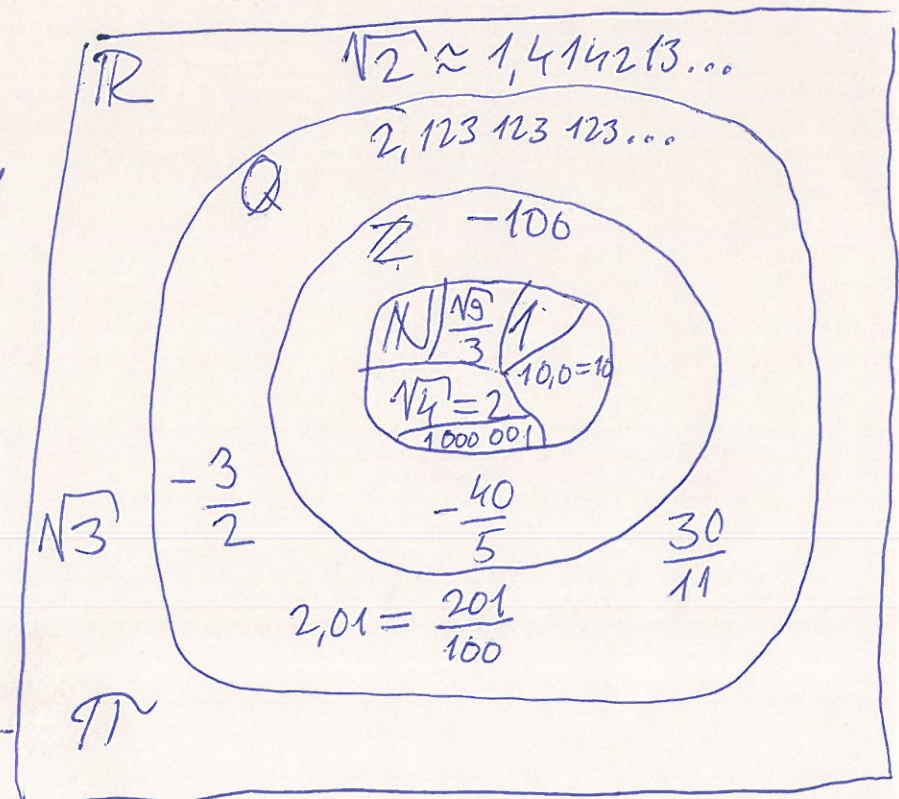 ℝ
√2 ≈ 1,414213...
2,123 123 123...
Q
ℤ
-106
ℕ
√9/3
1
10,0=10
√4 = 2
1000 001
-3/2
-40/5
√3
30/11
2,01 = 201/100
π